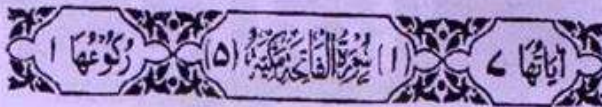 اٰیَاتُهَا ۷ (۱) سُوْرَةُ الْفَاتِحَةِ مَكِّیَّةٌ (۵) رُكُوْعُهَا ۱